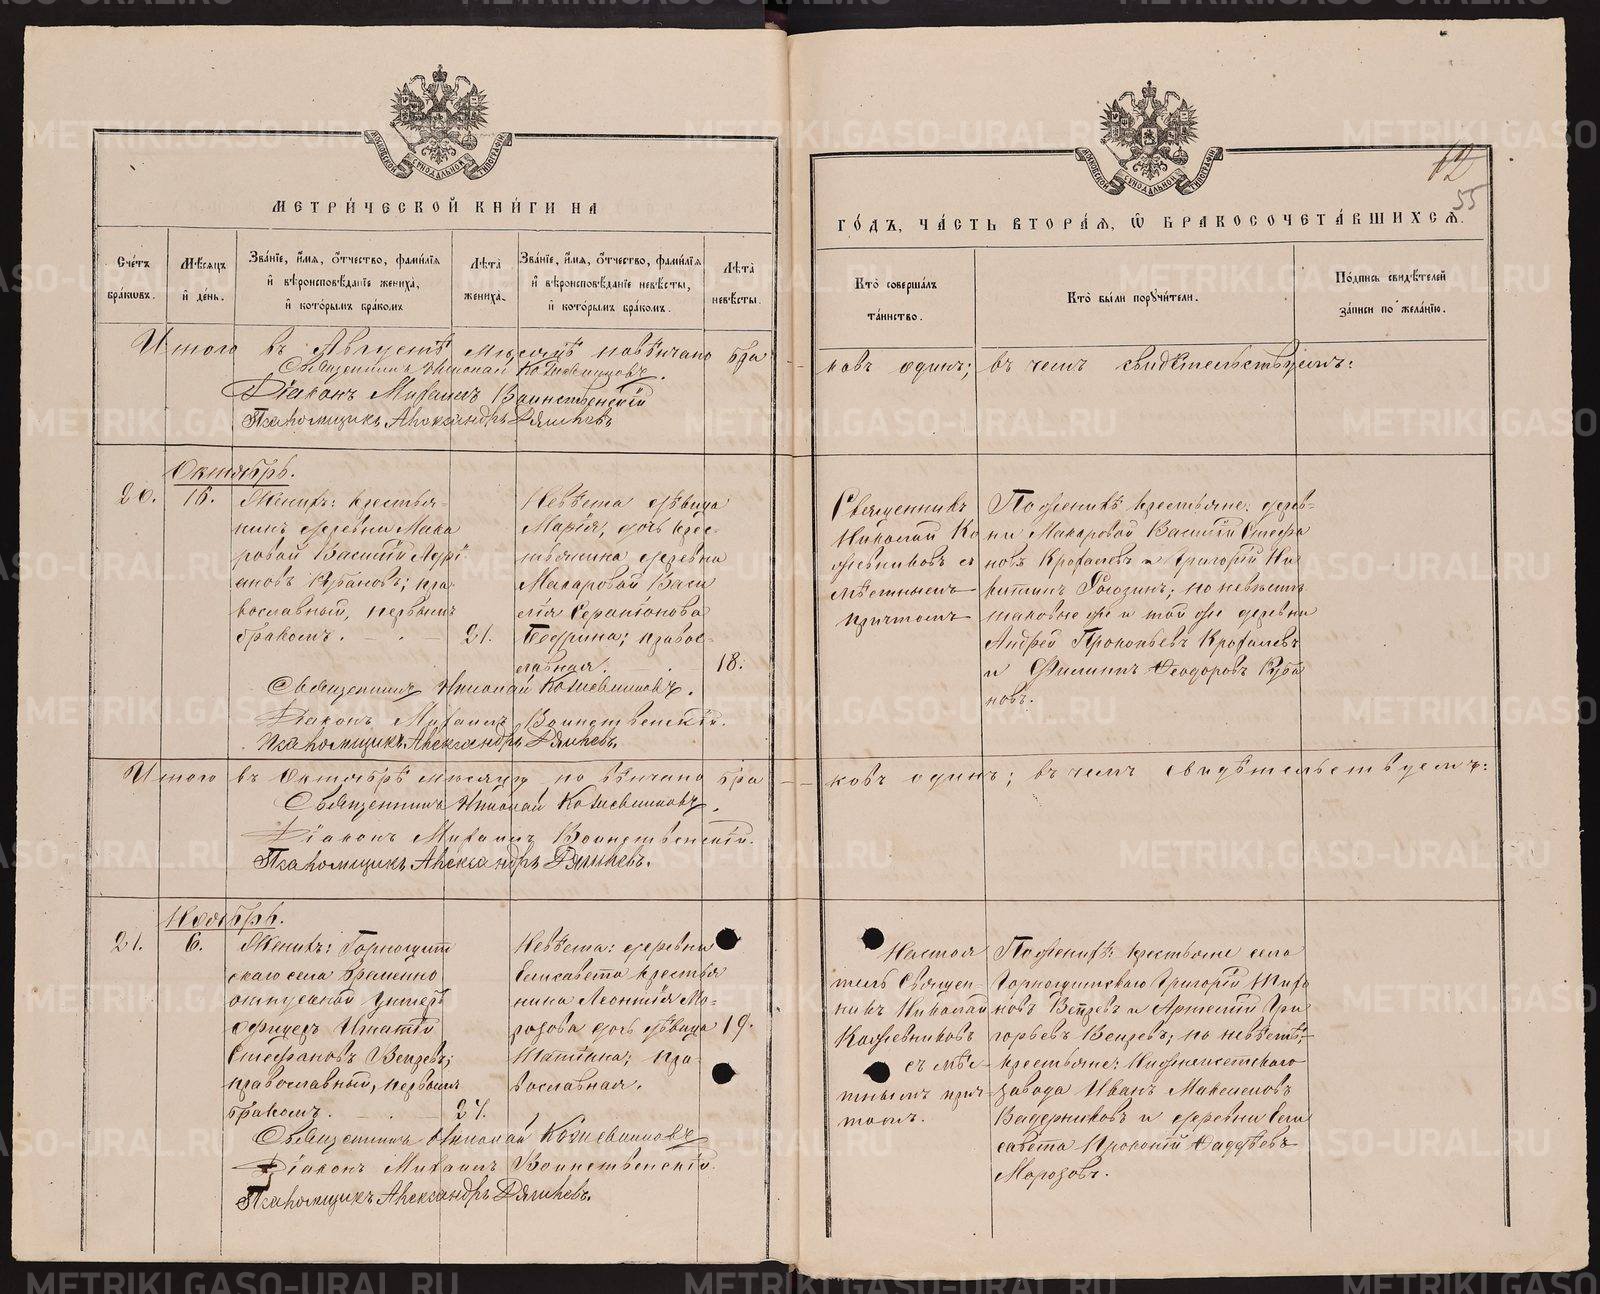 МЕТРИ́ЧЕСКОЙ КНИ́ГИ НА
Сче́тъ бра́кωвъ.
Мѣ́сяцъ и҆ де́нь.
Зва́нїе, и҆́мя, ѻ҆́тчество, фами́лїя и҆ вѣроисповѣ́данїе жениха̀, и҆ кото́рымъ бра́комъ
Лѣ́та жениха̀.
Зва́нїе, и҆́мя, ѻ҆́тчество, фами́лїя и҆ вѣроисповѣ́данїе невѣ́сты, и҆ кото́рымъ бра́комъ.
Лѣ́та невѣ́сты.
Итого въ Августѣ мѣсяцѣ повѣнчано бра
Священникъ Николай Кожевниковъ.
Дiаконъ Михаилъ Воинственскiй
Псаломщикъ Александръ Дягилевъ
Октябрь.
20.
16.
Женихъ: крестья-
нинъ деревни Мака
ровой Василiй Лерi
ановъ Кубановъ; пра
вославный, первымъ
бракомъ.
21.
Невѣста дѣвица
Марiя, дочь крес-
тьянина деревни
Макаровой Васи
лiя Серапiонова
Бедрина; правос-
лавная.
18.
Священникъ Николай Кожевниковъ.
Дiаконъ Михаилъ Воинственскiй.
Псаломщикъ Александръ Дягилевъ.
Итого въ Октябрѣ мѣсяцѣ по вѣнчано бра
Священникъ Николай Кожевниковъ.
Дiаконъ Михаилъ Воинственскiй.
Псаломщикъ Александръ Дягилевъ.
Ноябрь.
21.
6.
Женихъ: Горнощит
скаго села временно
отпускной унтеръ
офицеръ Игнатiй
Стефановъ Венцевъ;
православный, первымъ
бракомъ.
27.
Невѣста: деревни
Елисавета крестья
нина Леонтiя Мо-
розова дочь дѣвица
Татiана; пра-
вославная.
19.
Священникъ Николай Кожевниковъ
Дiаконъ Михаилъ Воинственскiй.
Псаломщикъ Александръ Дягилевъ.
12
55
ГО́ДЪ, ЧА́СТЬ ВТОРА́Я, Ѡ҆ БРАКОСОЧЕТА́ВШИХСЯ.
Кто̀ соверша́лъ та́инство.
Кто̀ бы́ли порꙋчи́тели.
По́дпись свидѣ́телей за́писи по жела́нїю.
ковъ одинъ; въ чемъ свидѣтельствуемъ:
Священникъ
Николай Ко
жевниковъ съ
мѣстнымъ
причтомъ
По женихѣ крестьяне: дерев-
ни Макаровой Василiй Стефа
новъ Крохалевъ и Григорiй Ни
китинъ Рогозинъ; по невѣстѣ
таковые же и той же деревни
Андрей Прокопьевъ Крохалевъ
и Филиппъ Феодоровъ Куба
новъ.
ковъ одинъ; въ чемъ свидѣтельствуемъ:
Настоя
тель Священ-
никъ Николай
Кожевниковъ
съ мѣс-
тнымъ прич
томъ.
По женихѣ: крестьяне села
Горнощитскаго Григорiй Тихо
новъ Венцевъ и Артемiй Гри
горьевъ Венцевъ; по невѣстѣ,-
крестьяне: Нижнеисетскаго
завода Иванъ Максимовъ
Ведерниковъ и деревни Ели
савета Прокопiй Фаддѣевъ
Морозовъ.
METRIKI.GASO-URAL.RU